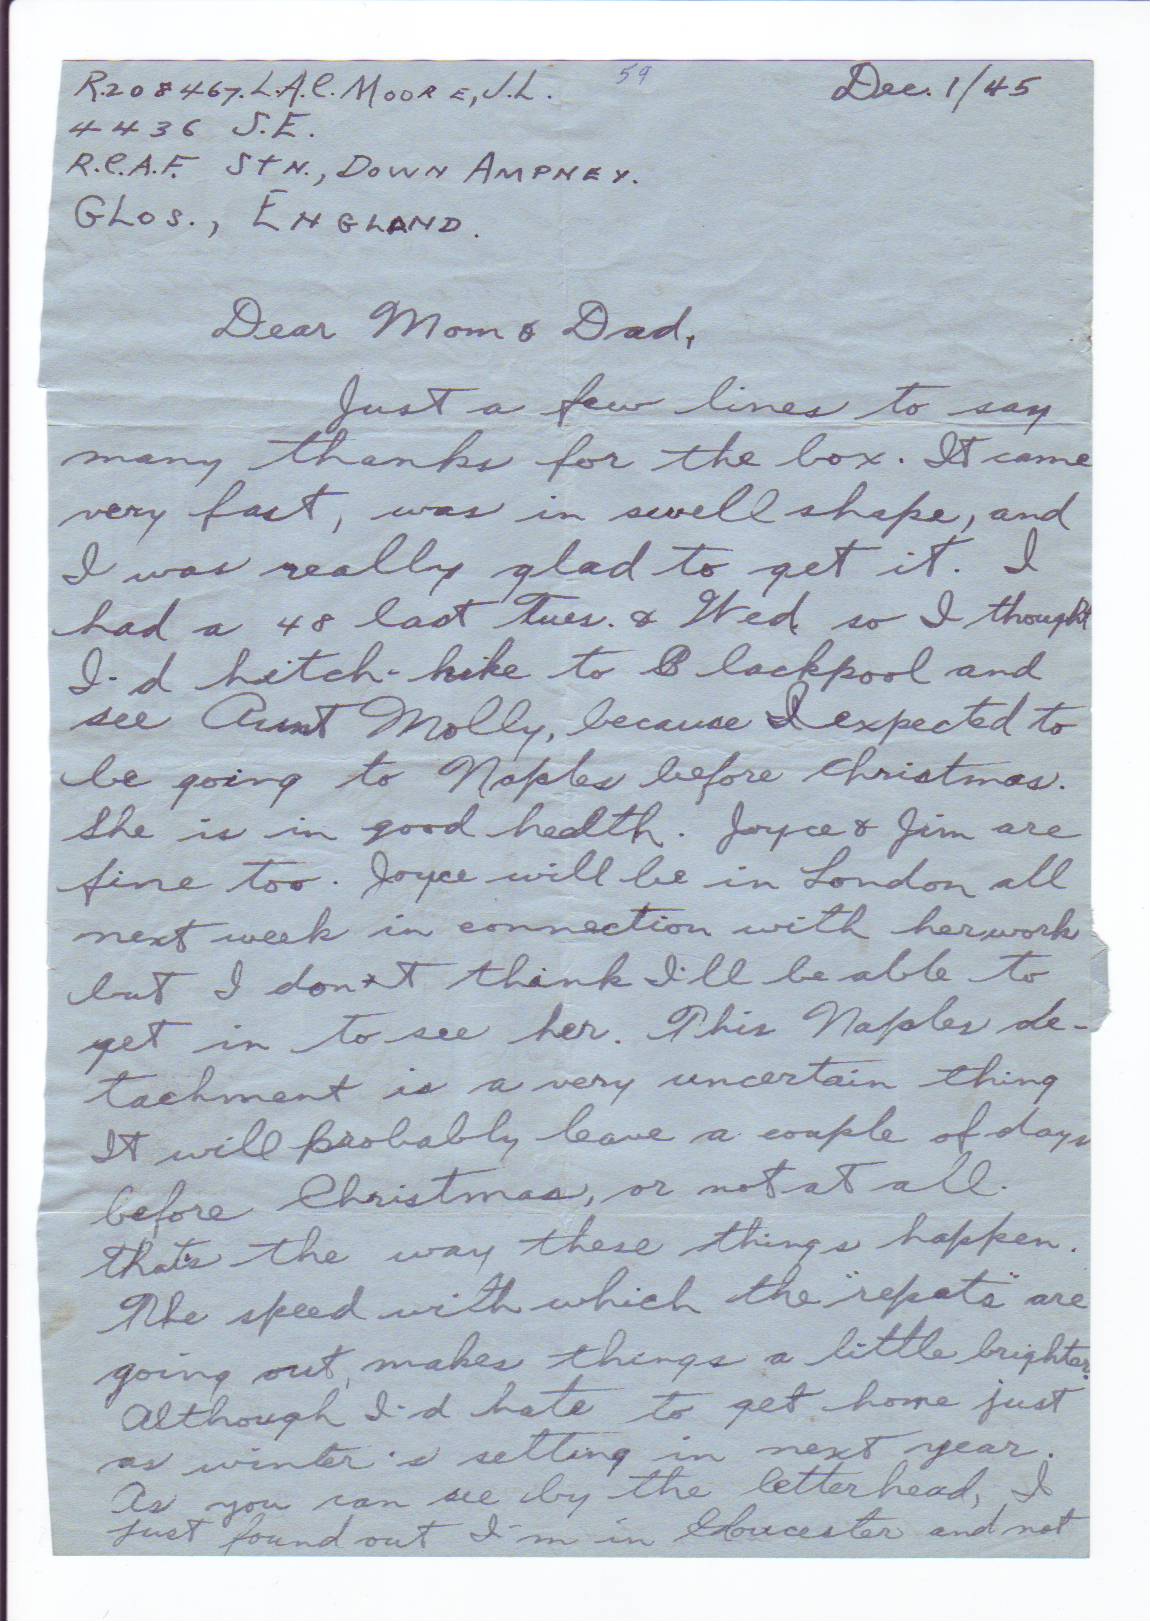 59
R.208467. L.A.C. MOORE, J.L.
Dec. 1/45
4436 S.E.
R.C.A.F. STN., DOWN AMPNEY.
GLOS., ENGLAND.
Dear Mom & Dad,
Just a few lines to say
many thanks for the box. It came
very fast, was in swell shape, and
I was really glad to get it. I
had a 48 last Tues. & Wed. so I thought
I'd hitch-hike to Blackpool and
see Aunt Molly, because I expected to
be going to Naples before Christmas.
She is in good health. Joyce & Jim are
fine too. Joyce will be in London all
next week in connection with her work
but I don't think I'll be able to
get in to see her. This Naples de-
tachment is a very uncertain thing
It will probably leave a couple of days
before Christmas, or not at all.
that's the way these things happen.
The speed with which the "repats" are
going out, makes things a little brighter.
Although I'd hate to get home just
as winter's setting in next year.
As you can see by the letterhead, I
just found out I'm in Gloucester and not